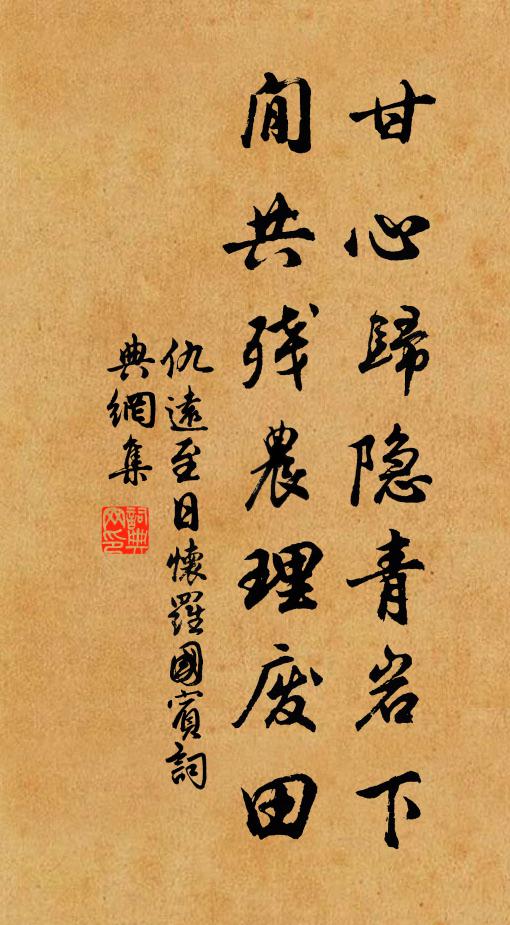 甘心歸隐青岩下
閒共残農理废田
仇遠至日懷羅國賓詞
典網集
詞典